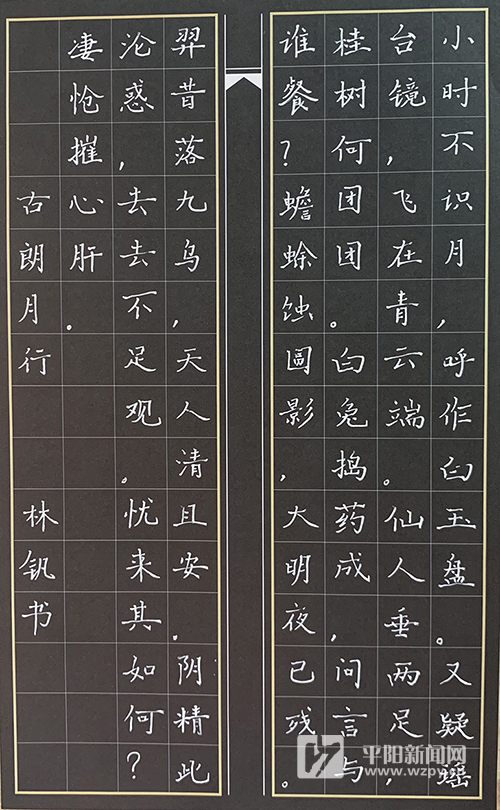 小时不识月，呼作白玉盘。又疑瑶
台镜，飞在青云端。仙人垂两足，
桂树何团团。白兔捣药成，问言与
谁餐？蟾蜍蚀圆影，大明夜已残。
羿昔落九乌，天人清且安。阴精此
沦惑，去去不足观。忧来其如何？
凄怆摧心肝。
古朗月行 林 书
平阳新闻网